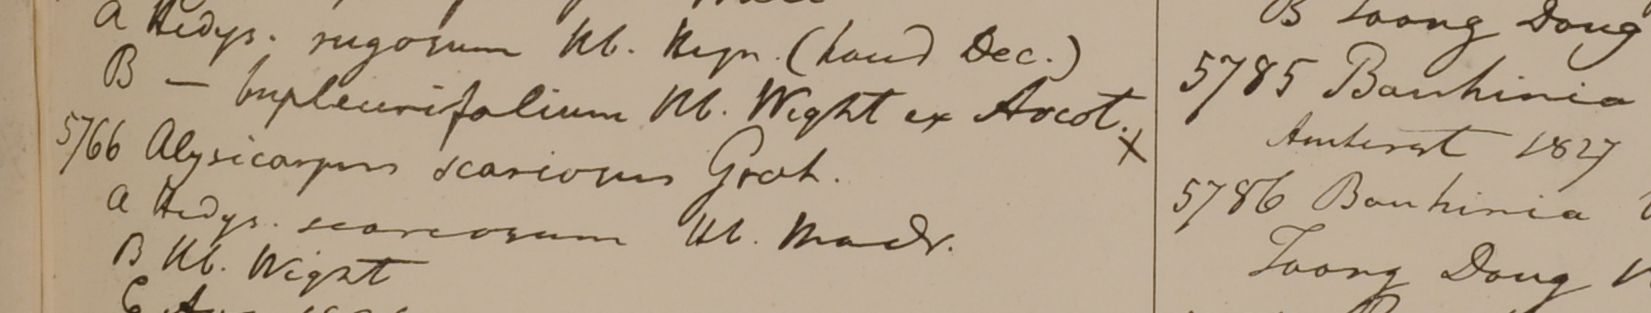 a Hedys. rugosum Hb. Heyn. (haud Dec.)
B — bupleurifolium Hb. Wight ex Arcot. x
5766 Alysicarpus scariosus Grah.
a Hedys. scariosum Hb. Madr.
B Hb. Wight
B Toong Doong
5785 Bauhinia
Amherst 1827
5786 Bauhinia
Toong Doong